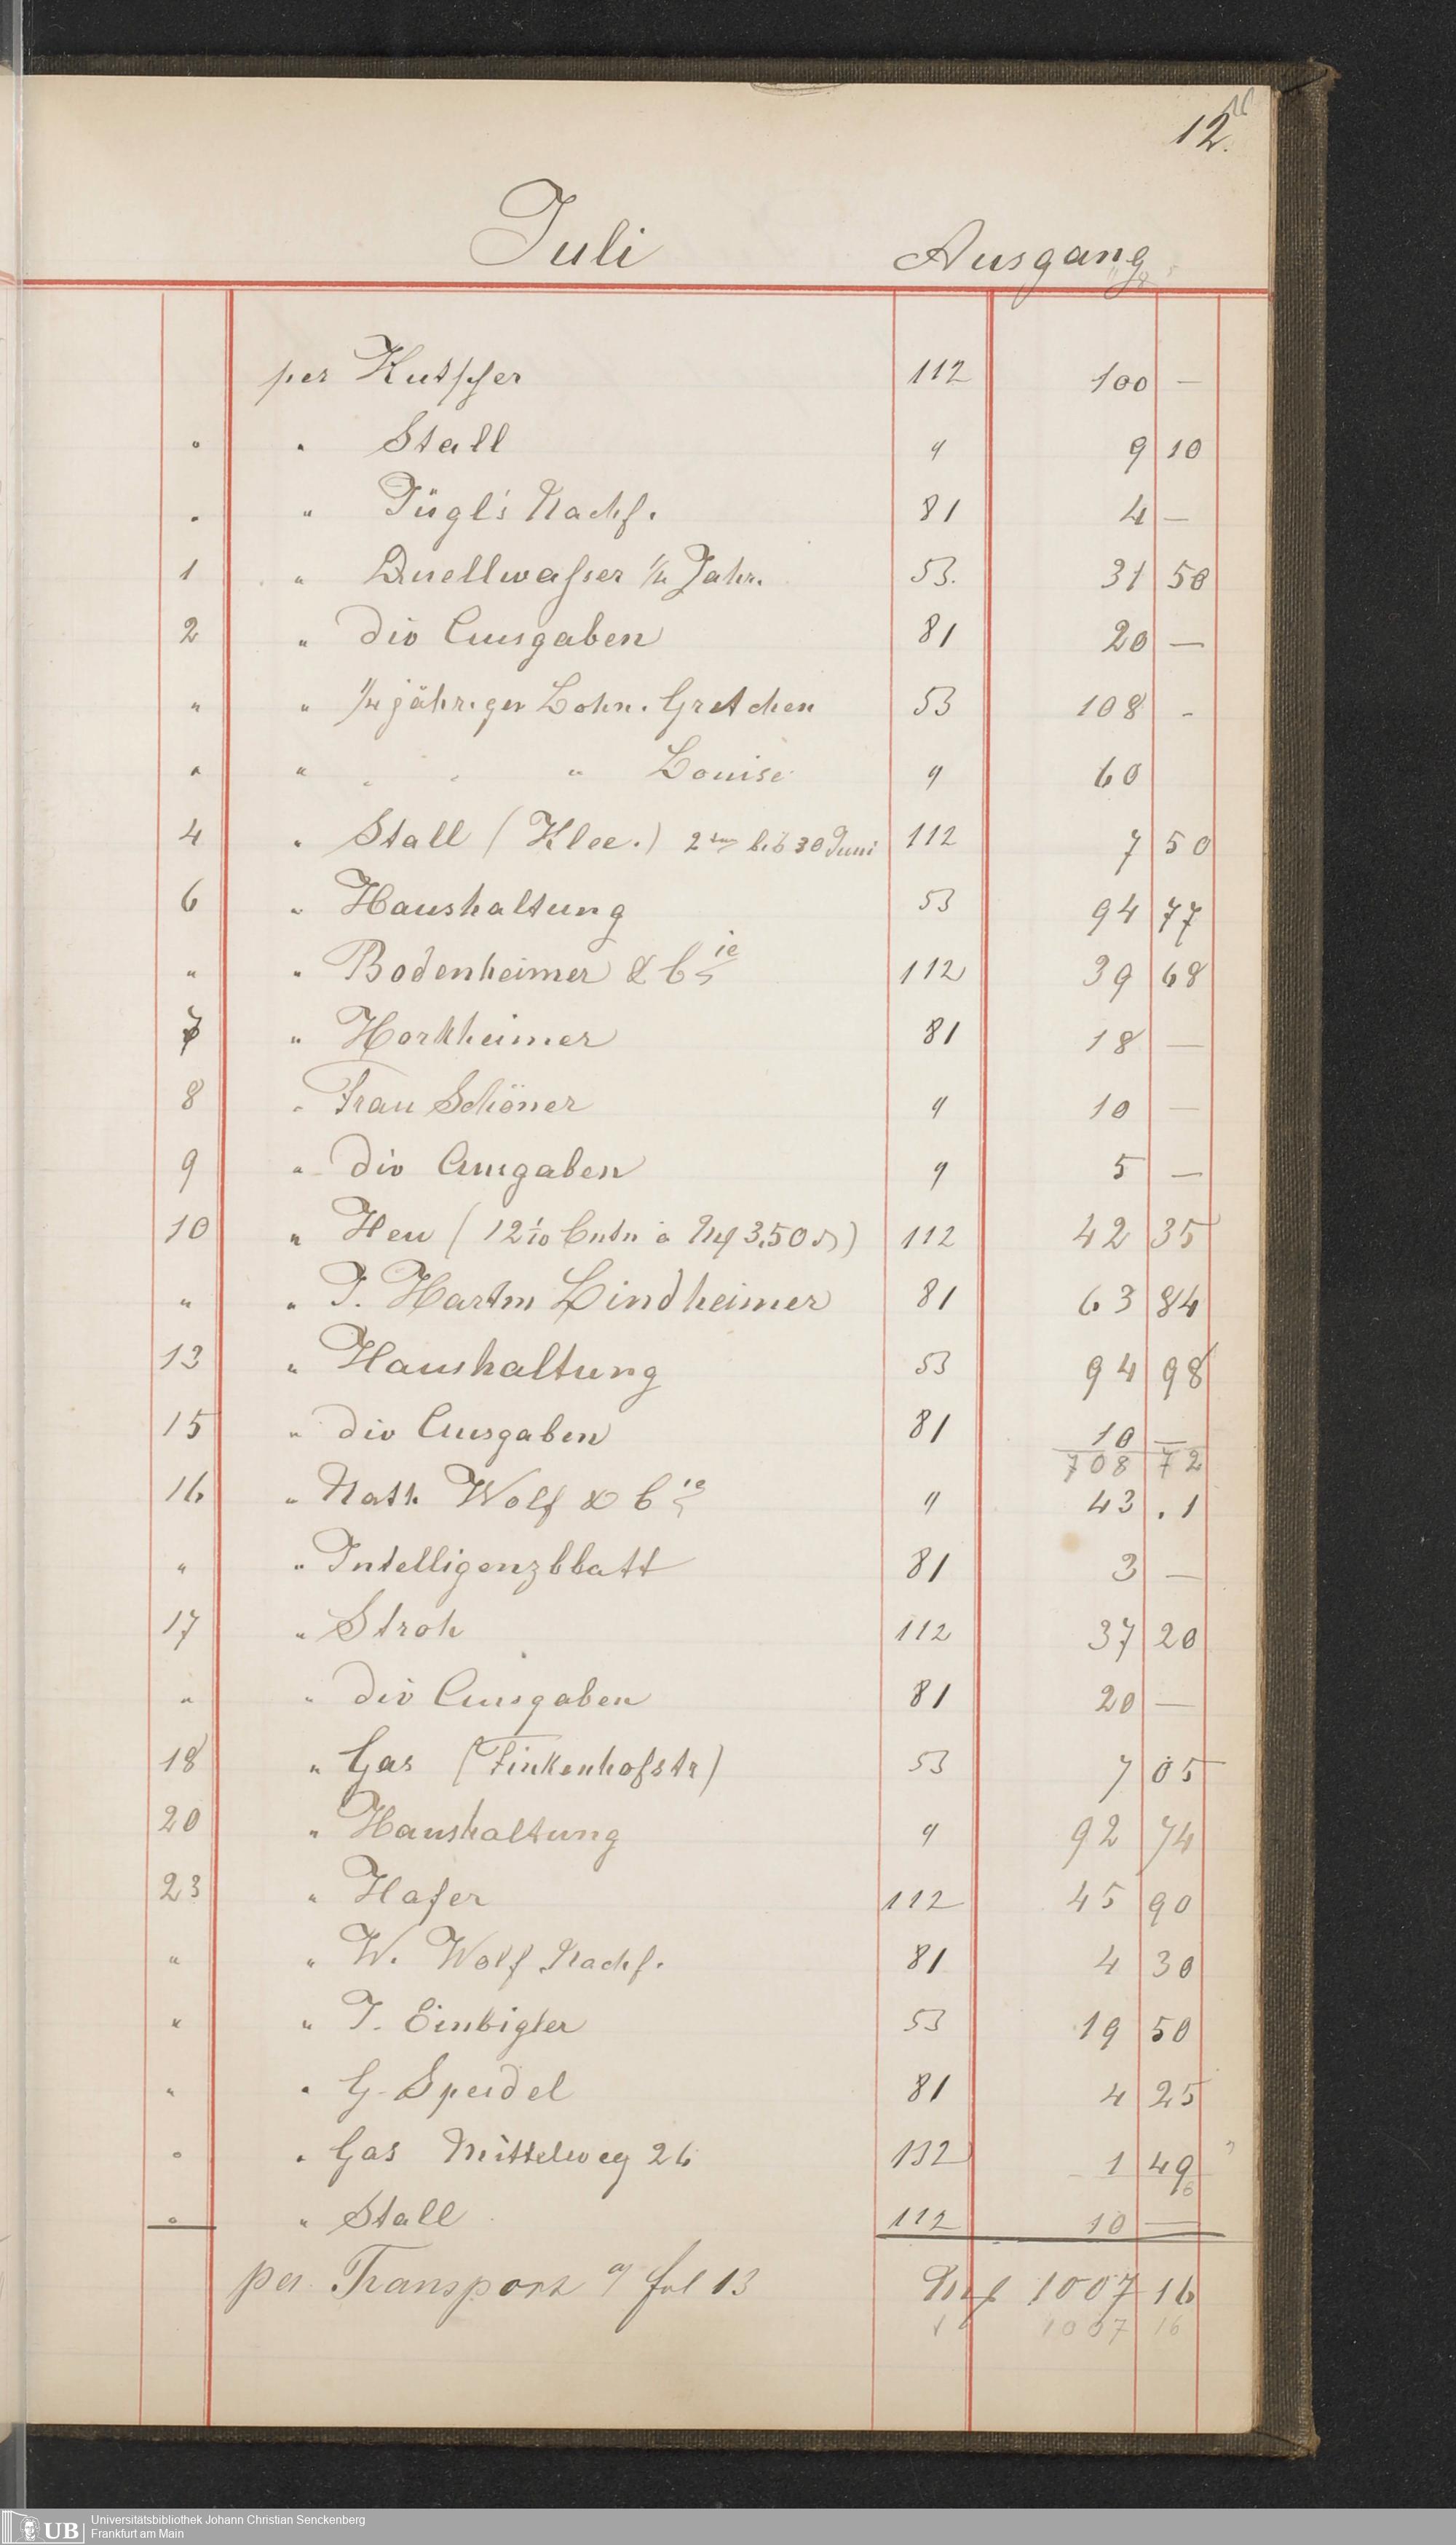 12.
Juli Ausgang
per Kutscher 112 100 —
" " Stall " 9 10
" " Tügl's Nachf. 81 4 —
1 " Quellwasser ¼ Jahr. 53. 31 50
2 " div Ausgaben 81 20 —
" " ¼ jähriger Lohn. Gretchen 53 108 -
" " " " " Louise " 60
4 " Stall (Klee.) 2ten bis 30 Juni 112 7 50
6 " Haushaltung 53 94 77
" " Bodenheimer & Cie 112 39 68
7 " Horkheimer 81 18 —
8 " Frau Schöner " 10 —
9 " div Ausgaben " 5 —
10 " Heu (12 1/10 Cntn à M 3.50 ₰) 112 42 35
" " J. Hartm Lindheimer 81 63 84
13 " Haushaltung 53 94 98
15 " div Ausgaben 81 10 —
708 72
16 " Nath. Wolf & Cie " 43 . 1
" " Intelligenzblatt 81 3 —
17 " Stroh 112 37 20
" " div Ausgaben 81 20 —
18 " Gas (Finkenhofstr) 53 7 05
20 " Haushaltung " 92 74
23 " Hafer 112 45 90
" " W. Wolf Nachf. 81 4 30
" " J. Einbigler 53 19 50
" " G. Speidel 81 4 25
" " Gas Mittelweg 26 132 1 49
" " Stall 112 10 —
per Transport a/ fol 13 M 1007 16
1007 16
Universitätsbibliothek Johann Christian Senckenberg
UB
Frankfurt am Main